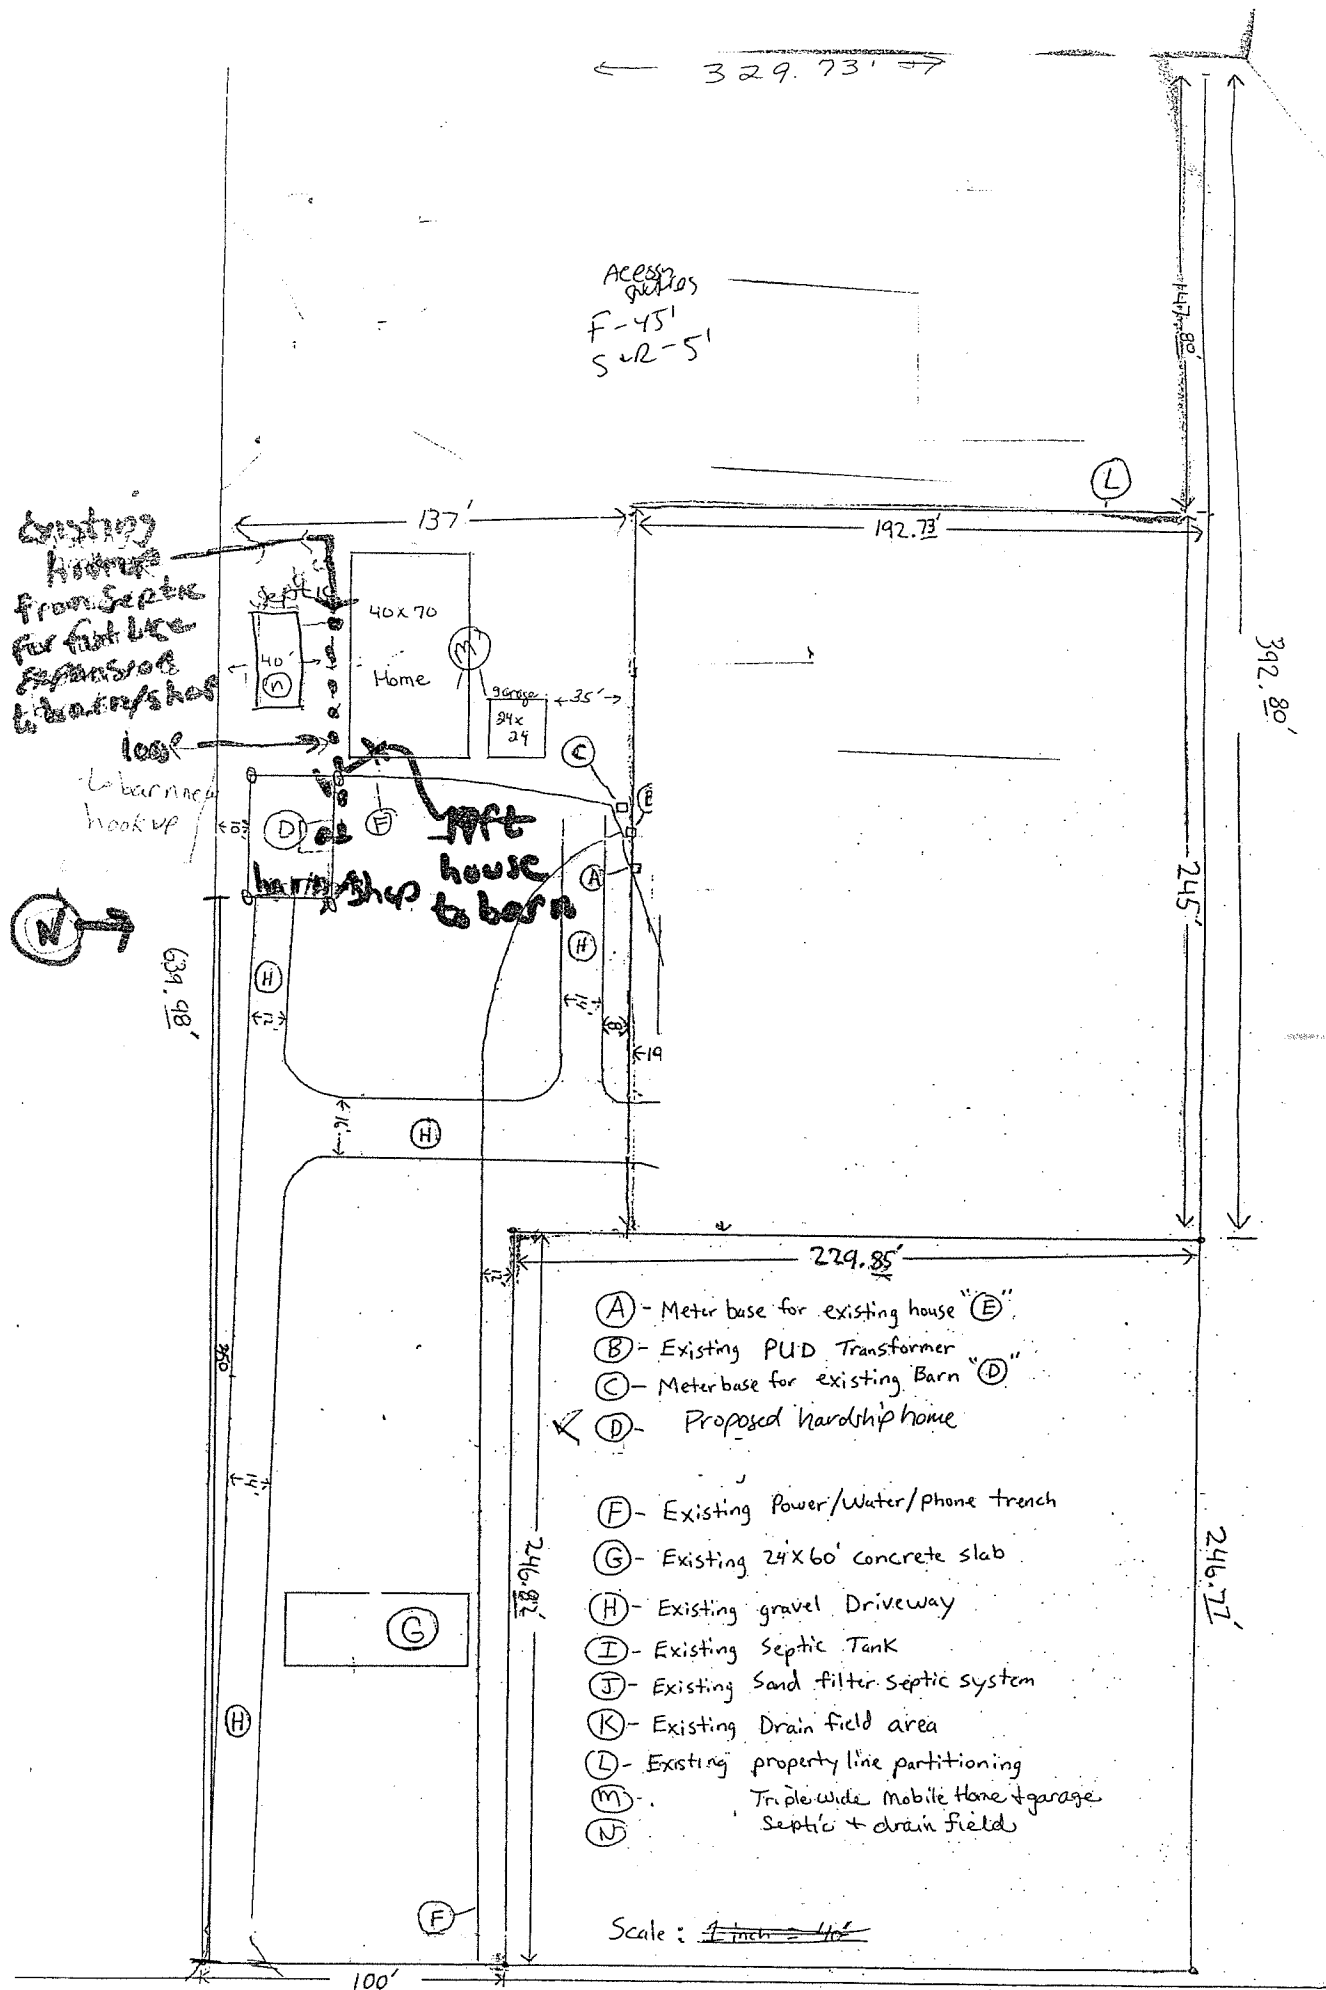 329.73'
147.80'
F-45'
S+R-5'
L
137'
192.73'
392.80'
Existing
from septic
for
expansion
to barn/shop
septic
40'
n
40x70
Home
M
garage
24x
24
35'
100'
to barn new
hookup
C
B
D
F
A
barn/shop
house
to barn
N
639.98'
H
12'
H
14'
8'
19
245'
16'
H
229.85'
12'
350
14'
246.82'
246.77'
G
H
F
100'
A - Meter base for existing house "E"
B - Existing PUD Transformer
C - Meter base for existing Barn "D"
D - Proposed hardship home
F - Existing Power/Water/phone trench
G - Existing 24'x60' concrete slab
H - Existing gravel Driveway
I - Existing Septic Tank
J - Existing Sand filter septic system
K - Existing Drain field area
L - Existing property line partitioning
M - Triple wide Mobile Home + garage
N Septic + drain field
Scale: 1 inch = 40'